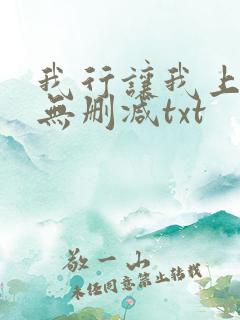 我行讓我上
無刪減txt
敬一山
未經同意禁止轉載